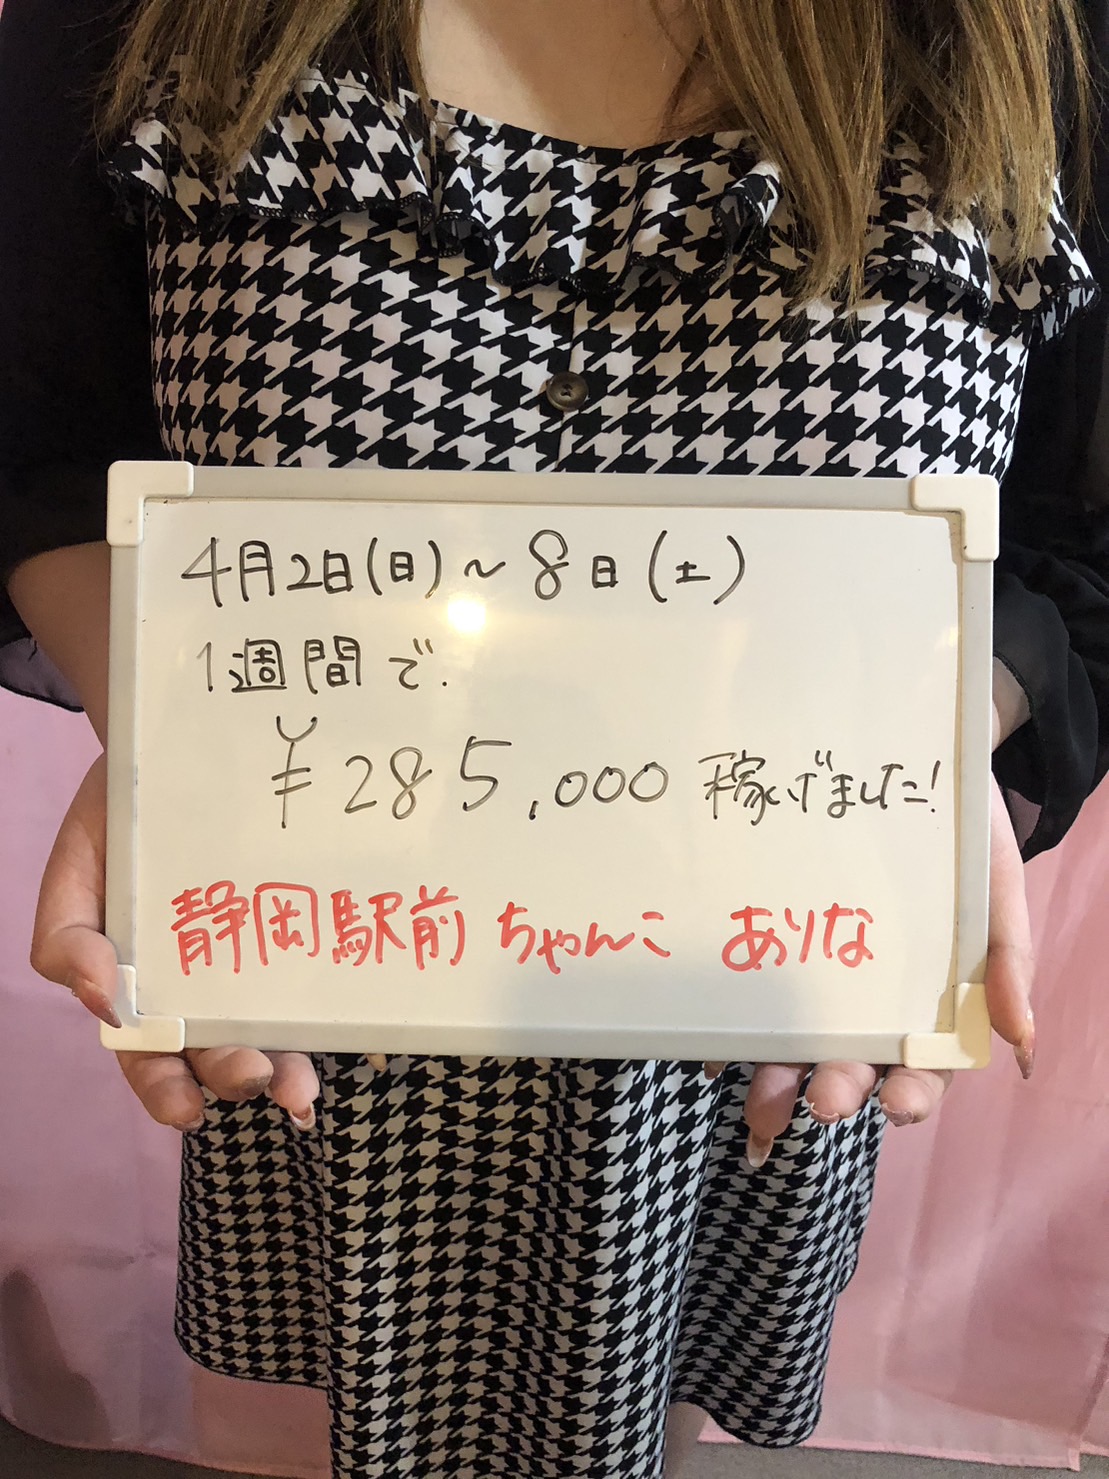 4月2日(日)～8日(土)
1週間で.
¥285,000 稼げました!
静岡駅前 ちゃんこ ありな